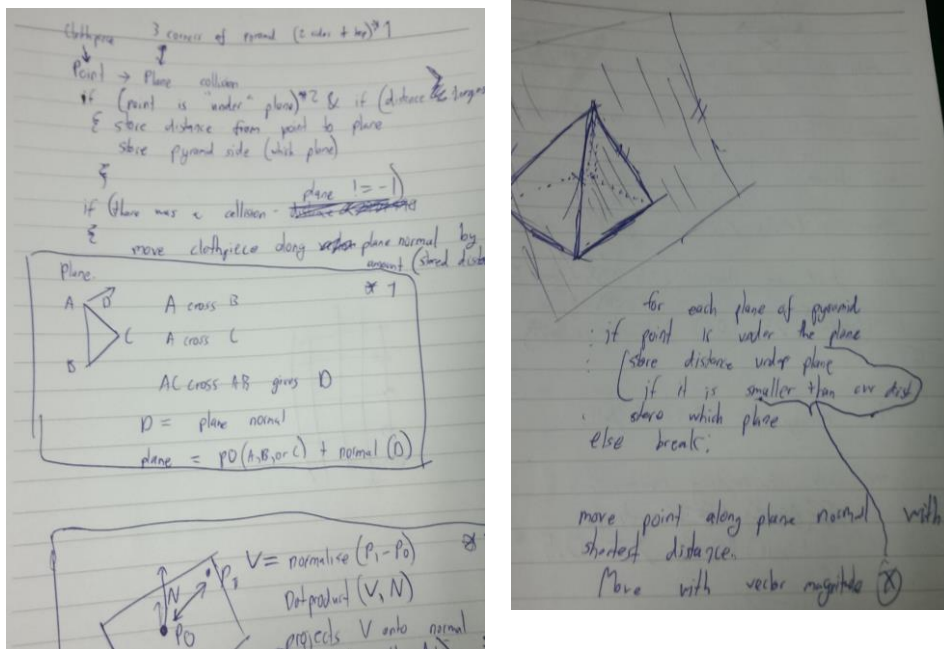 Clothpiece 3 corners of pyramid (2 sides + top) * 1
Point → Plane collision
if (point is "under" plane)*2 & if (distance
{ store distance from point to plane
store pyramid side (which plane)
}
if (there was a collision - plane != -1)
{
move clothpiece along plane normal by
amount (stored dist
Plane.
* 1
A D
C
B
A cross B
A cross C
AC cross AB gives D
D = plane normal
plane = p0(A,B,or C) + normal (D)
V = normalise (P1-P0)
Dotproduct (V,N)
projects V onto normal
N P1
P0
for each plane of pyramid
if point is under the plane
store distance under plane
if it is smaller than our dist
store which plane
else break;
move point along plane normal with
shortest distance.
Move with vector magnitude X